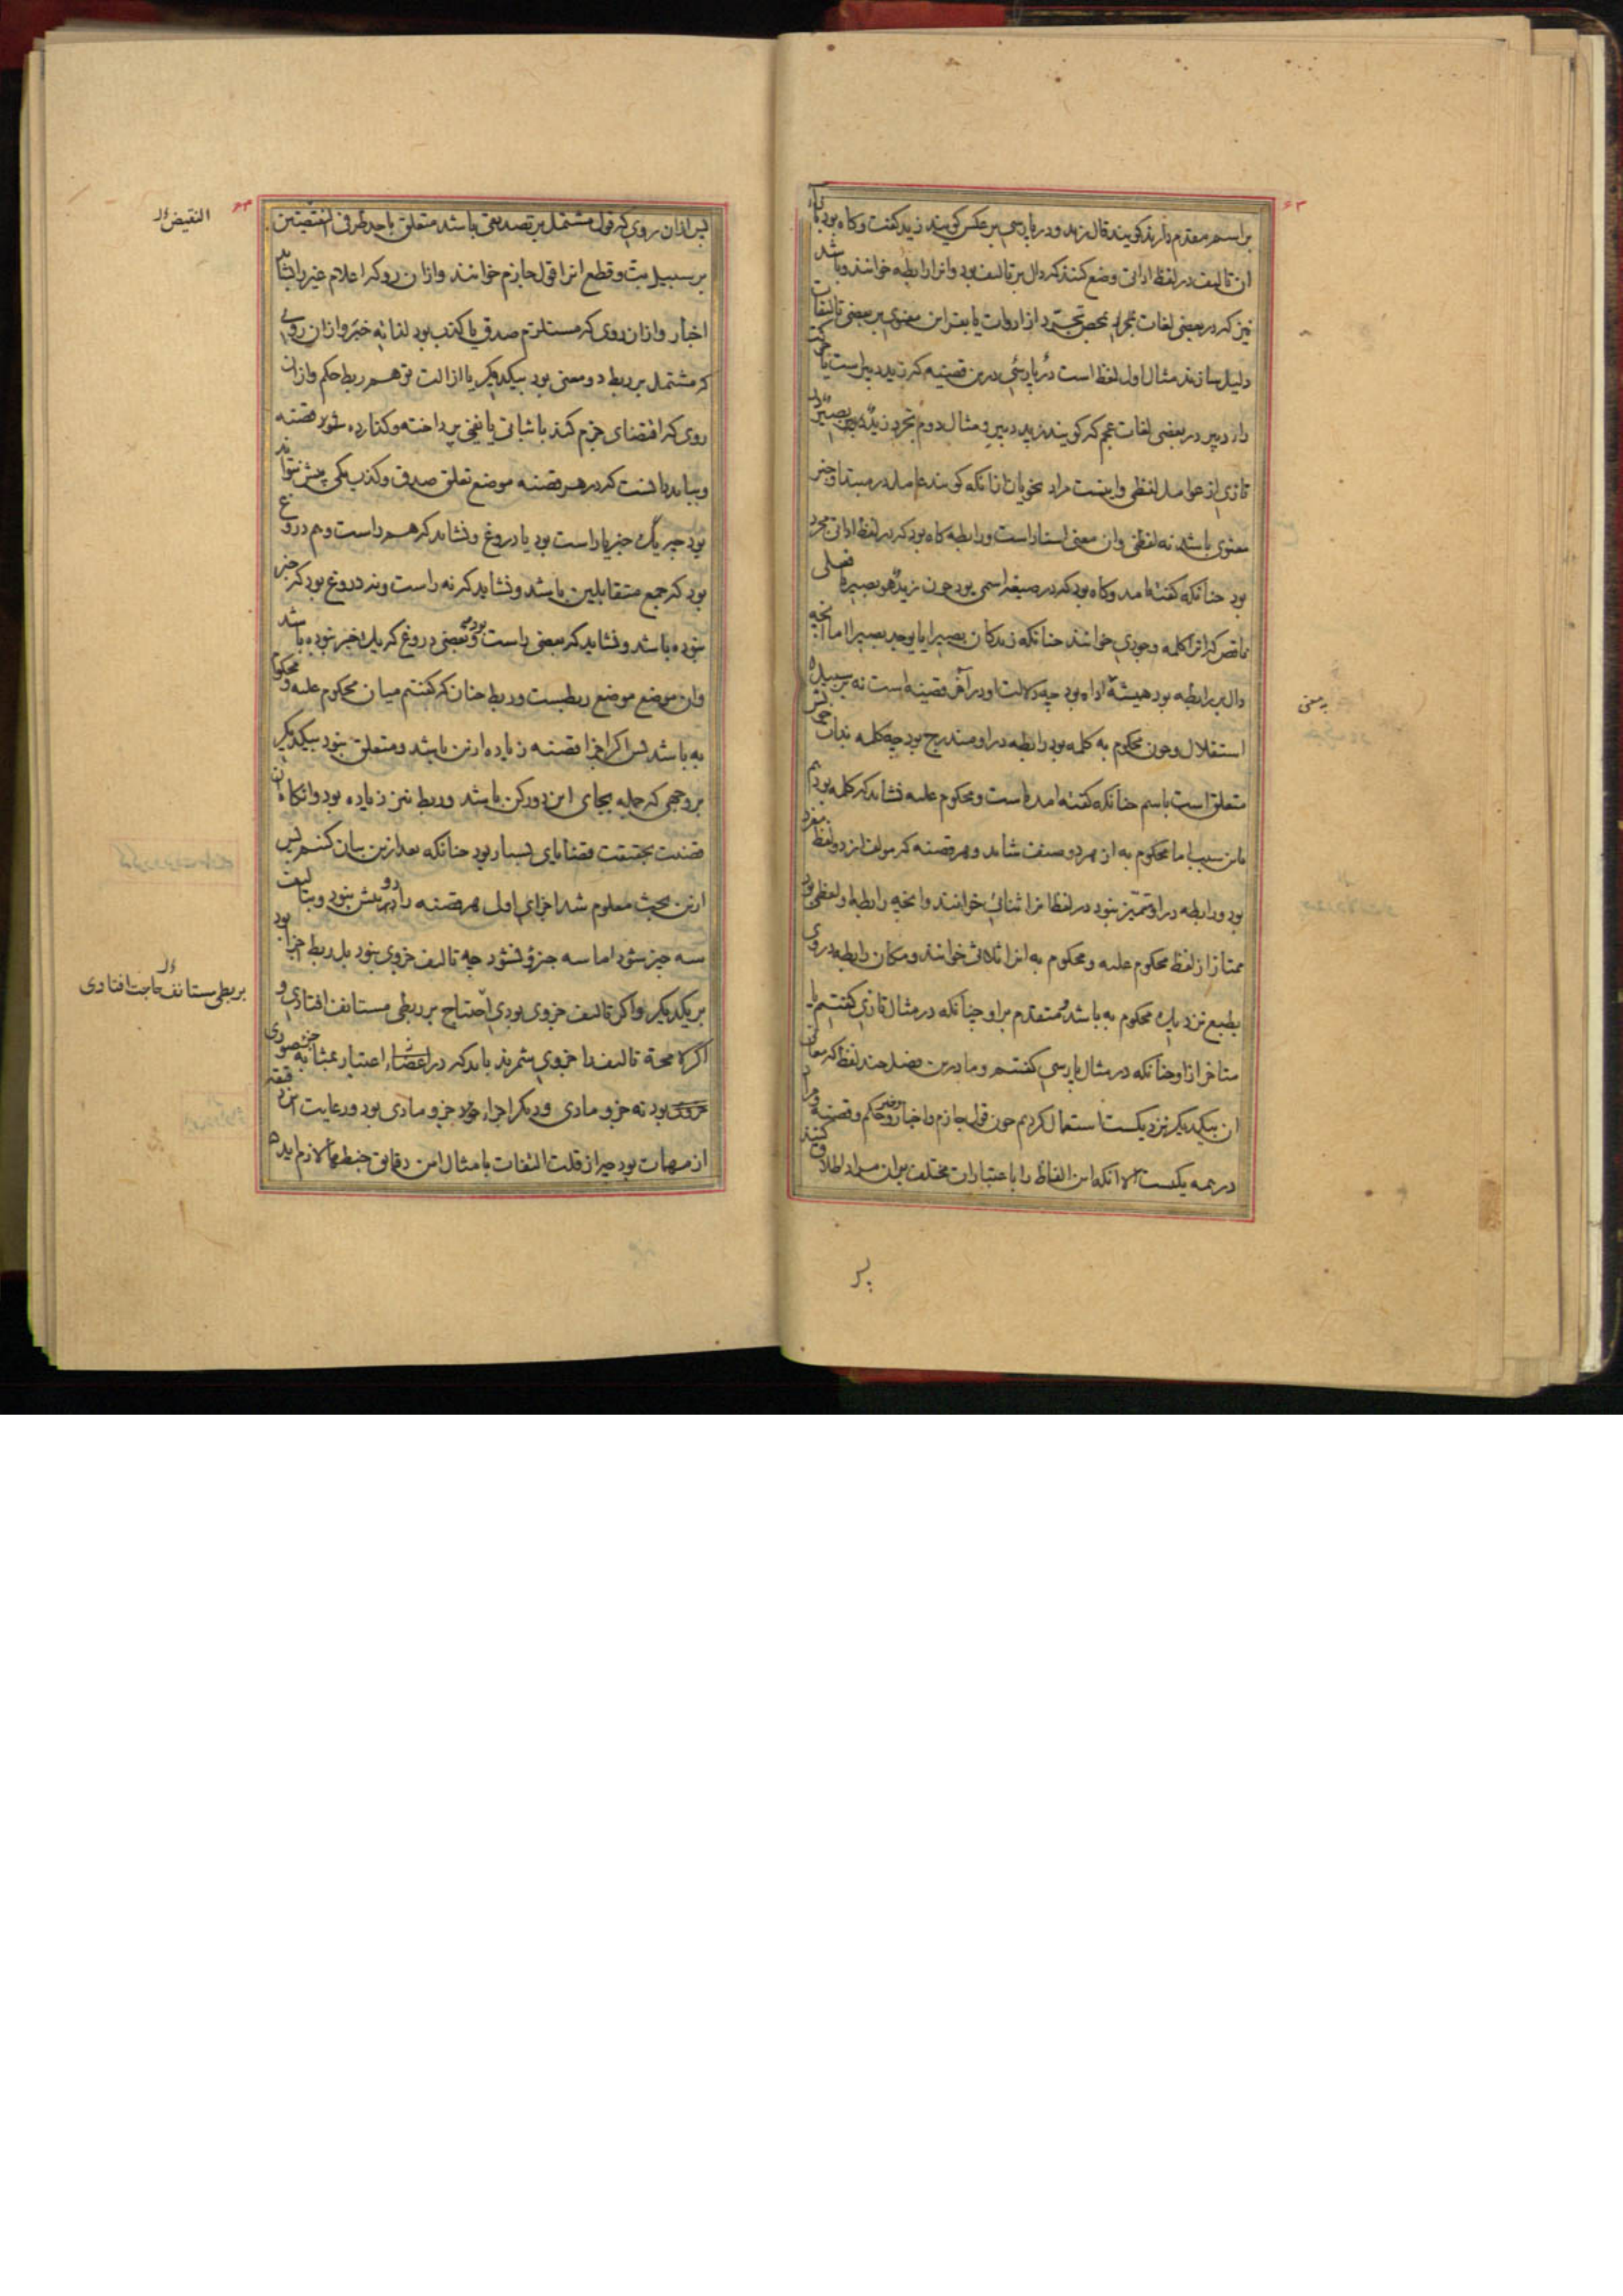 ۶۳
بر اسم مقدم دارند کویند قال زید و در پارسی بر عکس کویند زید کفت و کاه بود که بازاء
ان تالیف در لفظ اداتی وضع کنند که دال بر تالیف بود و انرا رابطه خوانند و باشد
نیز که در بعضی لغات مجرد از ادوات یا بقراین معنوی بر بعضی تالیفات
دلیل سازند مثال اول لفظ است در پارسی درین قضیه که زید دبیر است یا حرکت
دال دبیر در بعضی لغات عجم که کویند زید دبیر و مثال دوم تجرد زید بصیر در
تازی از عوامل لفظی و اینست مراد نحویان از انکه کویند عامل در مبتدا و خبر
معنوی باشد نه لفظی و ان معنی اسناد است و رابطه کاه بود که در لفظ اداتی مجرد
بود چنانکه کفته امد و کاه بود که در صیغه اسمی بود چون زید هو بصیر یا فعلی
ناقص که انرا کلمه وجودی خوانند چنانکه زید کان بصیرا یا یوجد بصیرا اما انچه
دال بر رابطه بود همیشه اداه بود چه دلالت او در اخر قضیه است نه بر سبیل
به معنی
استقلال و چون محکوم به کلمه بود رابطه در او مندرج بود چه کلمه بذات خویش
متعلق است باسم چنانکه کفته امده است و محکوم علیه نشاید که کلمه بود هم
باین سبب اما محکوم به از هر دو صنف شاید و هر قضیه که مولف از دو لفظ مفرد
بود و رابطه در او متمیز نبود در لفظ انرا ثنائی خوانند و انچه رابطه او لفظی بود
ممتاز از لفظ محکوم علیه و محکوم به انرا ثلاثی خوانند و مکان رابطه در وی
بطبع نزدیک محکوم به باشد متقدم بر او چنانکه در مثال تازی کفتیم یا
متاخر از او چنانکه در مثال پارسی کفتیم و ما درین فصل چند لفظ که معانی
ان بیکدیکر نزدیکست استعمال کردیم چون قول جازم و اخبار و خبر و حکم و قضیه و مراد
در همه یکیست الا انکه این الفاظ را باعتبارات مختلف بران مراد اطلاق کنند
پس
۶۴
پس ازان روی که قول مشتمل بر تصدیقی باشد متعلق باحد طرفی النقیضین
النقیض
بر سبیل بت و قطع انرا قول جازم خوانند و ازان رو که اعلام غیر را شاید
اخبار و ازان روی که مستلزم صدق یا کذب بود لذاته خبر و ازان روی
که مشتمل بر ربط دو معنی بود بیکدیکر یا ازالت توهم ربط حکم و ازان
روی که اقتضای جزم کند باثباتی یا نفیی پرداخته و کذارده شود قضیه
و بباید دانست که در هر قضیه موضع تعلق صدق و کذب یکی بیش نتواند
بود چه یک خبر یا راست بود یا دروغ و نشاید که هم راست و هم دروغ
بود که جمع متقابلین باشد و نشاید که نه راست و نه دروغ بود که خبر
نبوده باشد و نشاید که بعضی راست بود و بعضی دروغ که یک خبر نبوده باشد
وان موضع موضع ربطست و ربط چنان که کفتیم میان محکوم علیه و محکوم
به باشد پس اکر اجزا قضیه زیاده ازین باشد و متعلق نبود بیکدیکر
بر وجهی که جمله بجای این دو رکن باشد و ربط نیز زیاده بود و انکاه ان
قضیت بحقیقت قضایای بسیار بود چنانکه بعد ازین بیان کنیم پس
ازین بحث معلوم شد اجزای اول هر قضیه را دو بیش نبود و بتالیف
سه چیز شود اما سه جزؤ نشود چه تالیف جزوی نبود بل ربط اجزا بود
بر یکدیکر و اکر تالیف جزوی بودی احتیاج بر ربطی مستانف افتادی و
بربطی مستانف حاجت افتادی
اکر تالیف را جزوی شمرند باید که در اعتبار بمثابه جزء صوری
بود نه جزو مادی و دیکر اجزاء جزو مادی بود و رعایت این دقیقه
از مهمات بود چه از قلت التفات بامثال این دقایق خبطها لازم اید